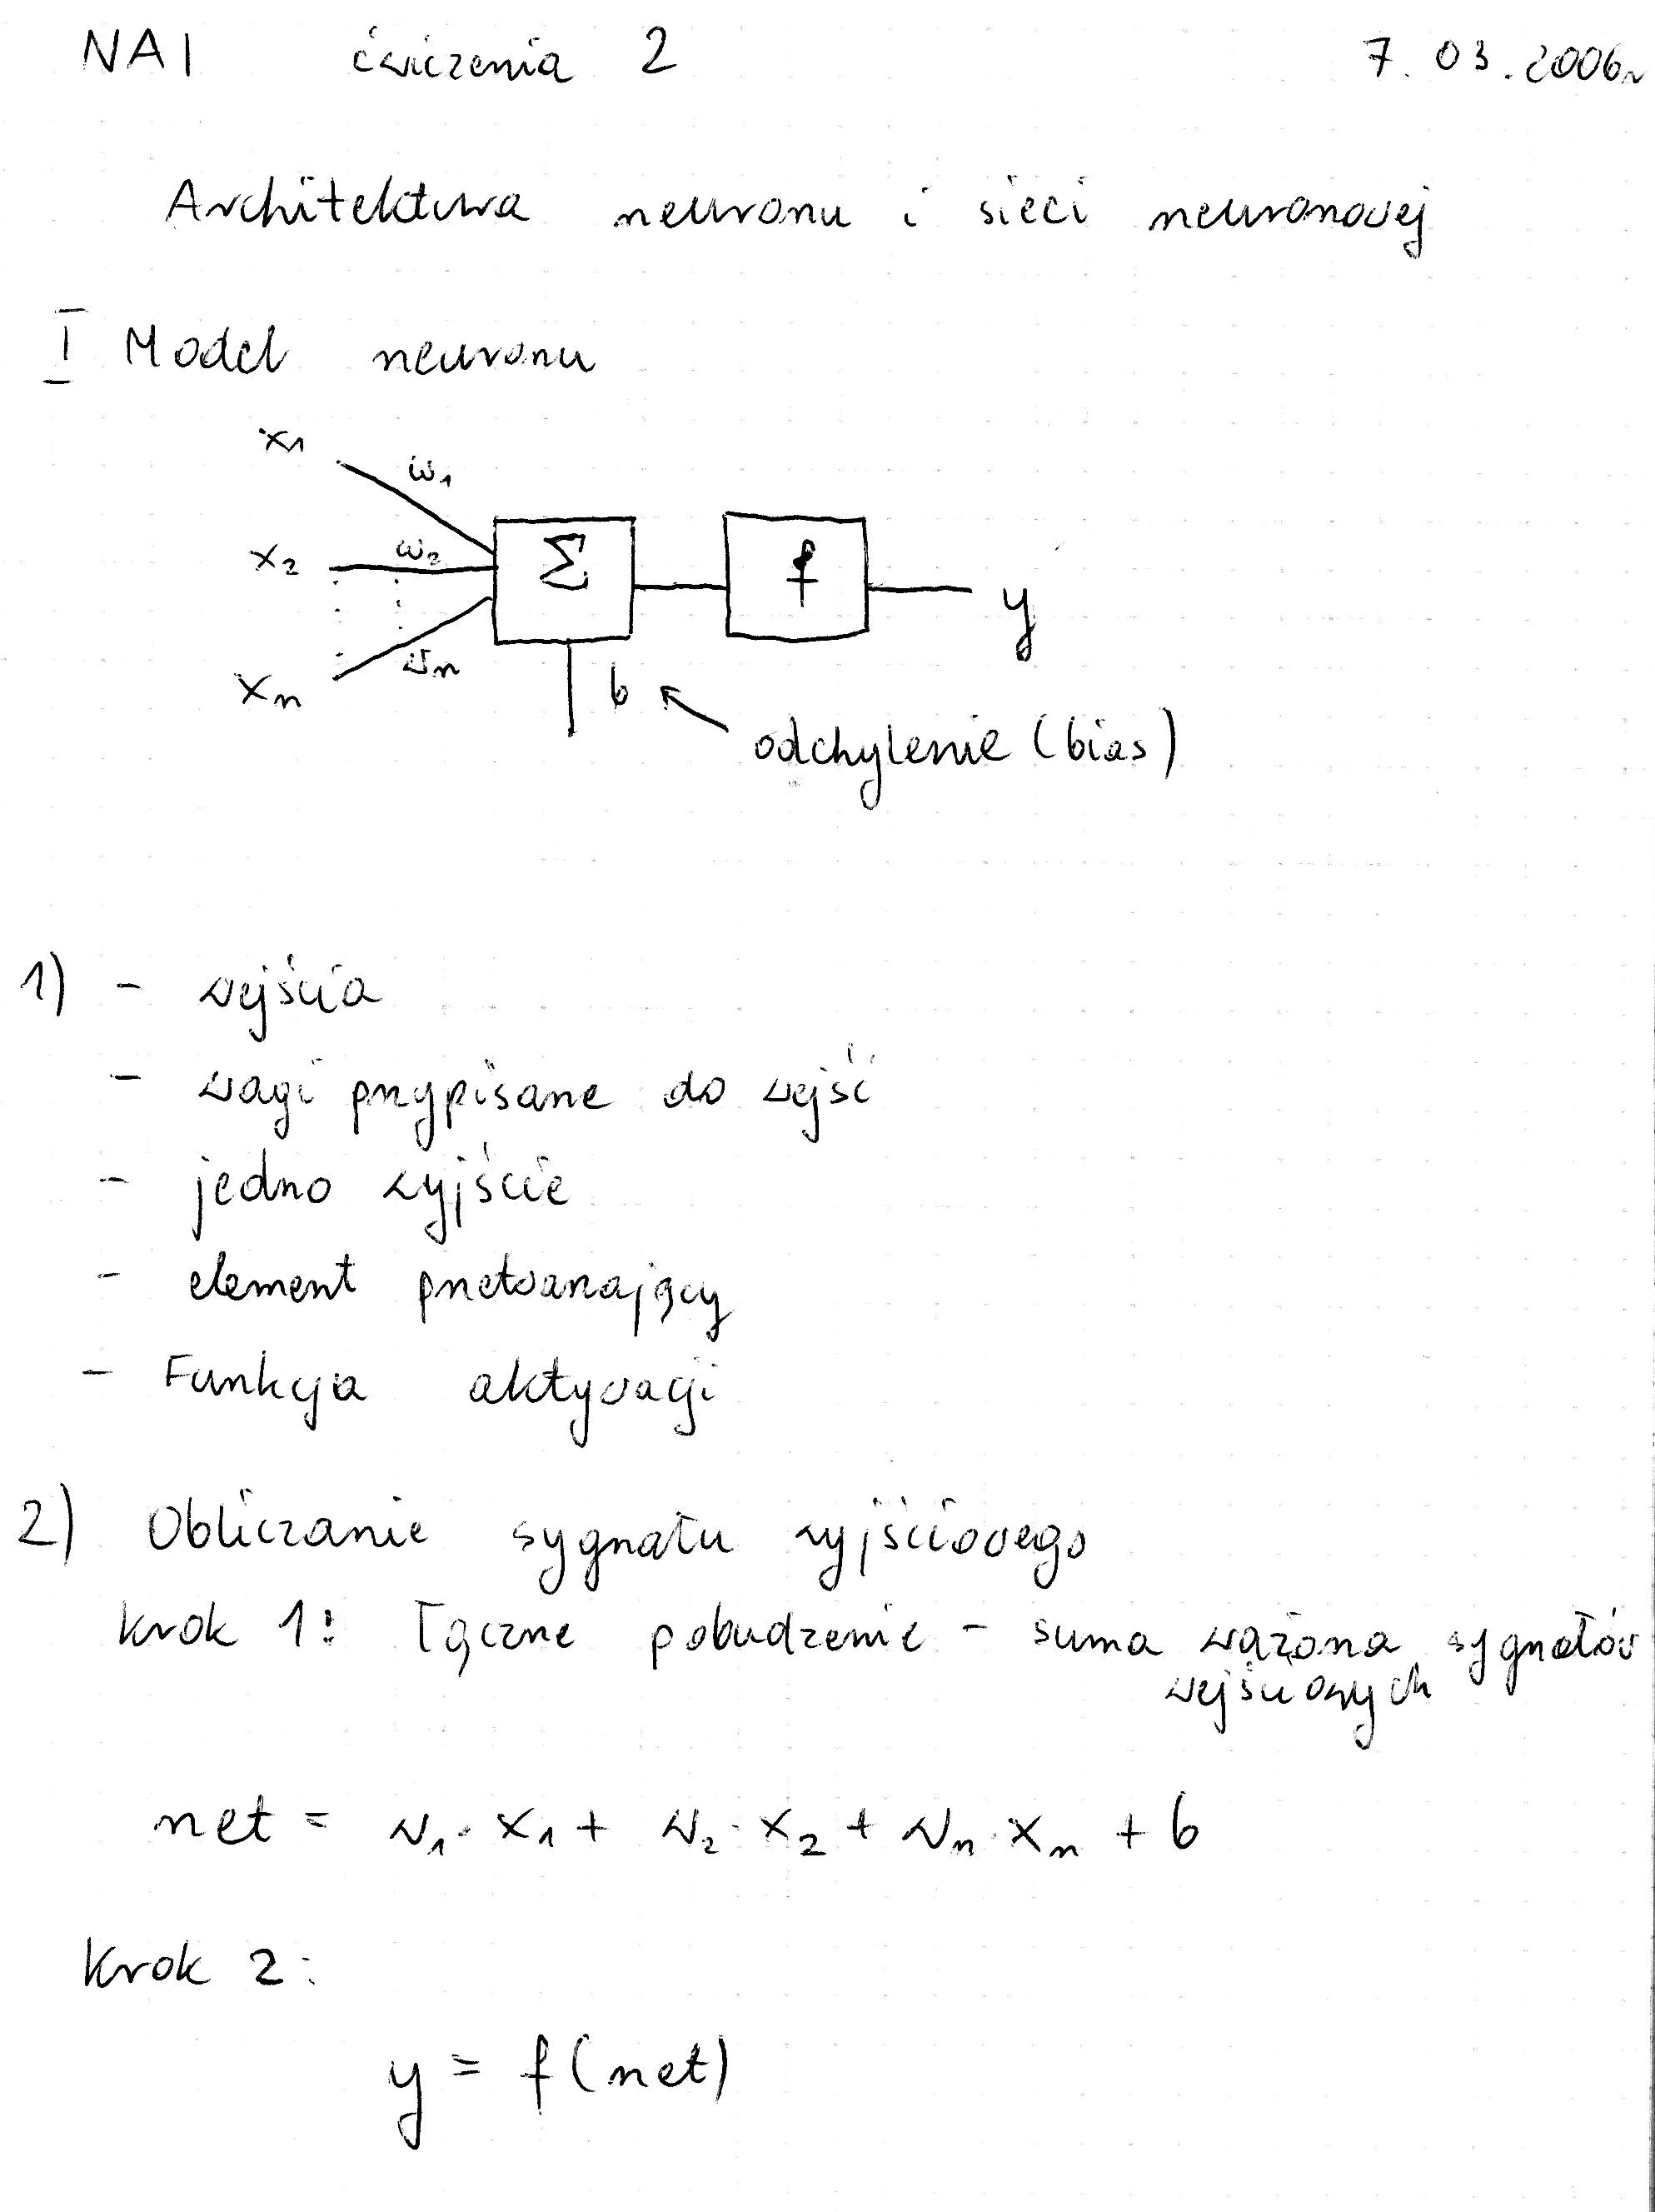 NAI ćwiczenia 2 7.03.2006r
Architektura neuronu i sieci neuronowej
I Model neuronu
x1
w1
x2
w2
Σ
f
y
xn
wn
b
odchylenie (bias)
1) - wejścia
- wagi przypisane do wejść
- jedno wyjście
- element przetwarzający
- Funkcja aktywacji
2) Obliczanie sygnału wyjściowego
krok 1: łączne pobudzenie - suma ważona sygnałów
wejściowych
net = w1 · x1 + w2 · x2 + wn · xn + b
Krok 2:
y = f(net)